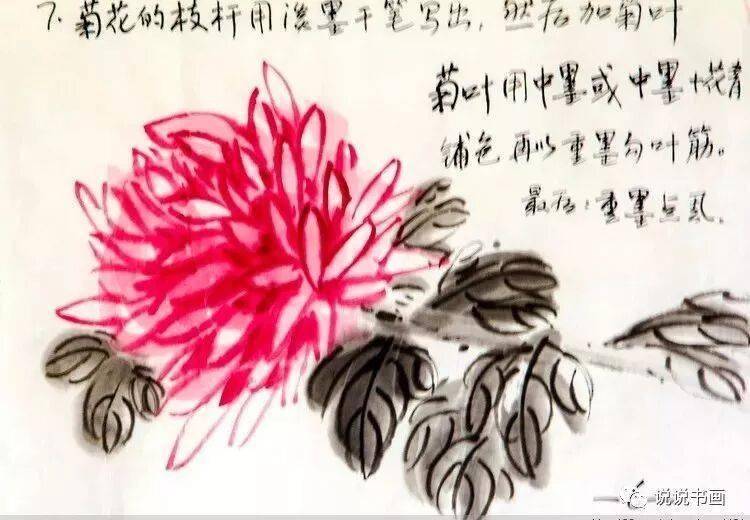 7. 菊花的枝杆用淡墨干笔写出，然后加菊叶
菊叶用中墨或中墨+花青
铺色再以重墨勾叶筋。
最后：重墨点
说说书画